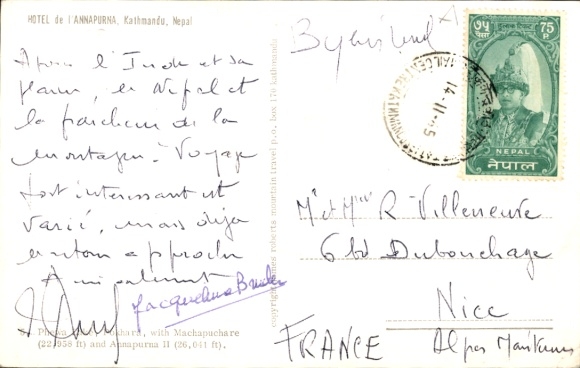 HOTEL de l'ANNAPURNA, Kathmandu, Nepal
Après l'Inde et sa
, le Népal et
la fraicheur de la
montagne. Voyage
fort intéressant et
varié, mais déjà
le retour approche
Amicalement
Jacqueline
, with Machapuchare
(22,958 ft) and Annapurna II (26,041 ft).
roberts mountain travel p.o. box 170 kathmandu
By Air
७५
75
P
NEPAL
नेपाल
14-11-
Mr et Mme R. Villeneuve
6 bd Dubouchage
Nice
FRANCE
Alpes Maritimes